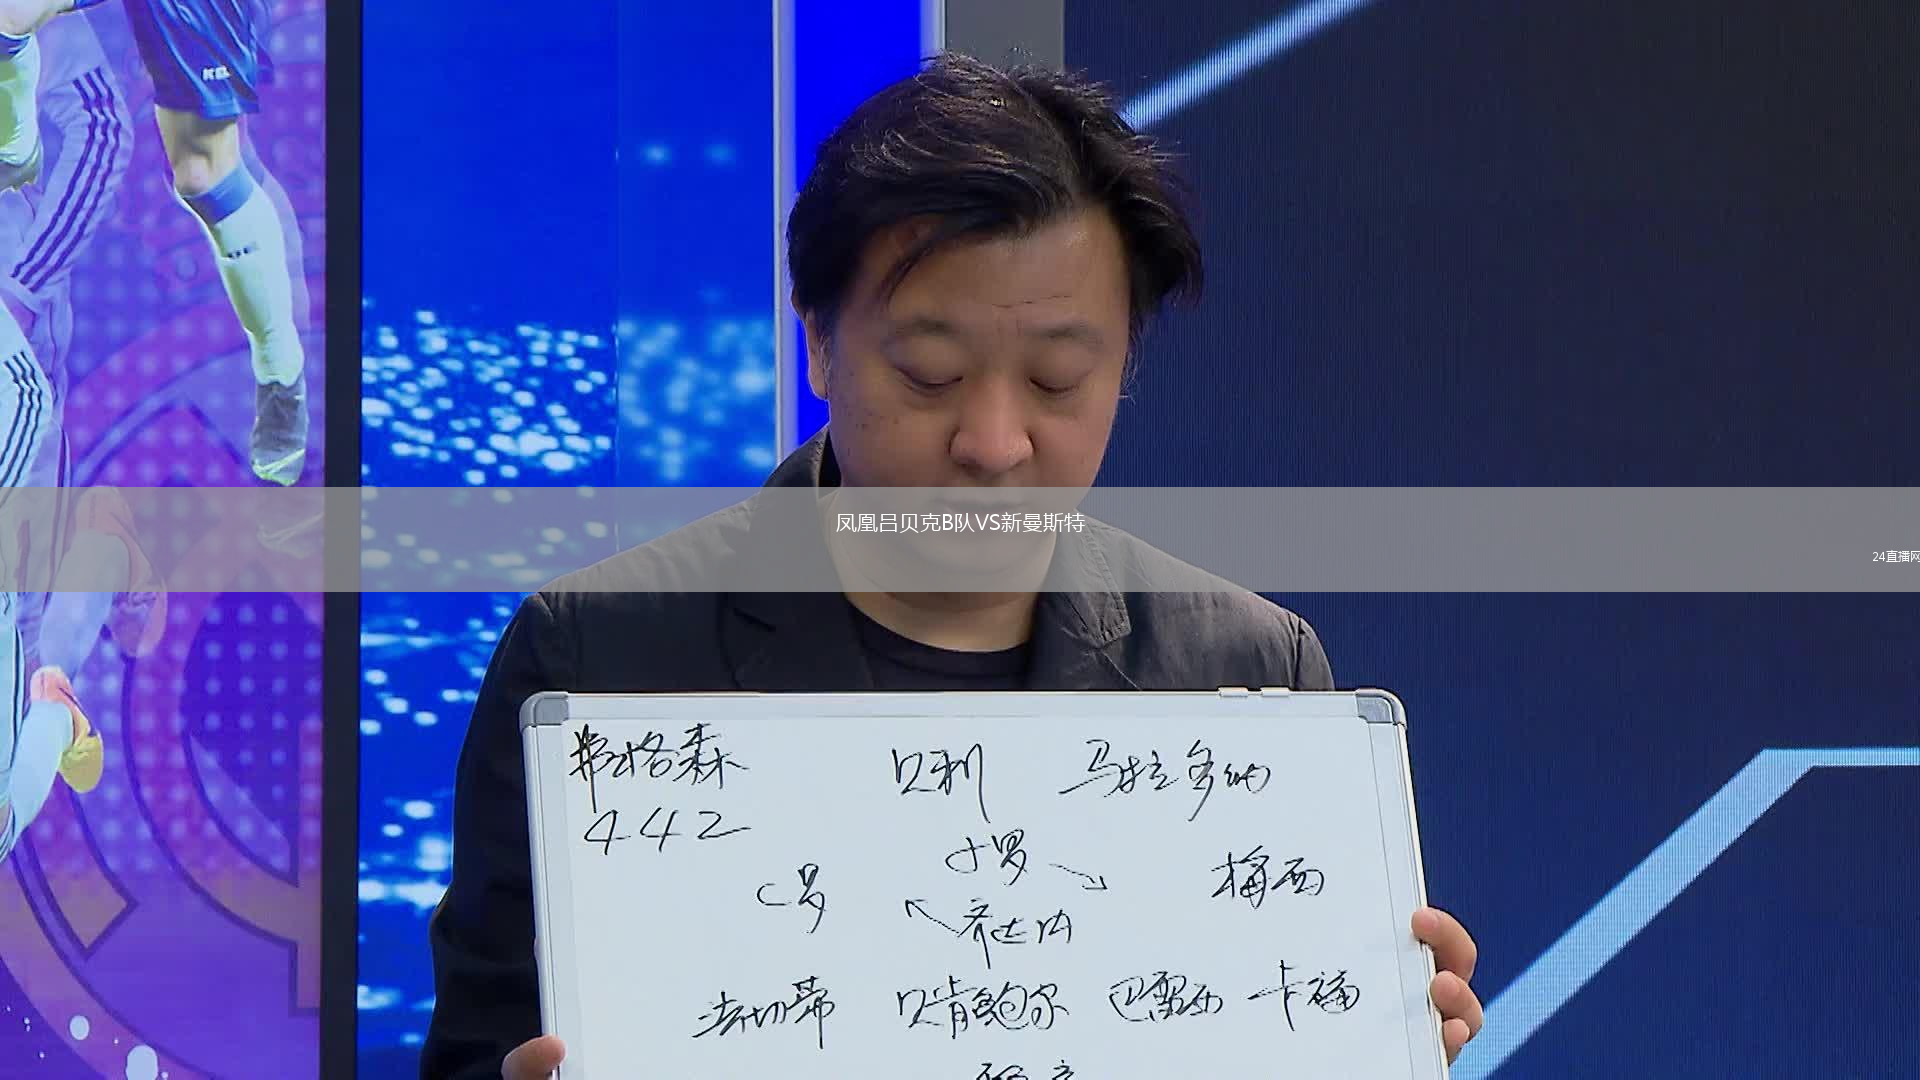 凤凰吕贝克B队VS新曼斯特
24直播网
弗格森 贝利 马拉多纳
442
小罗
C罗 梅西
齐达内
法切蒂 贝肯鲍尔 巴雷西 卡福